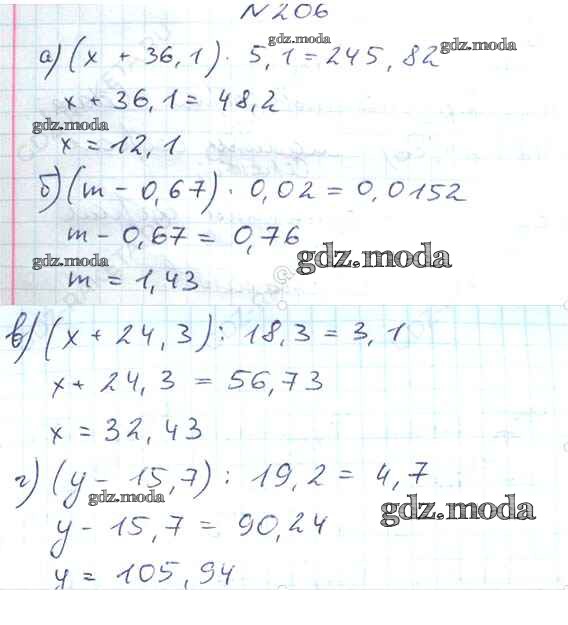 N 206
а) (x + 36,1) · 5,1 = 245,82
gdz.moda
gdz.moda
x + 36,1 = 48,2
gdz.moda
x = 12,1
б) (m - 0,67) · 0,02 = 0,0152
m - 0,67 = 0,76
gdz.moda
gdz.moda
m = 1,43
в) (x + 24,3) : 18,3 = 3,1
x + 24,3 = 56,73
x = 32,43
г) (y - 15,7) : 19,2 = 4,7
gdz.moda
gdz.moda
y - 15,7 = 90,24
y = 105,94